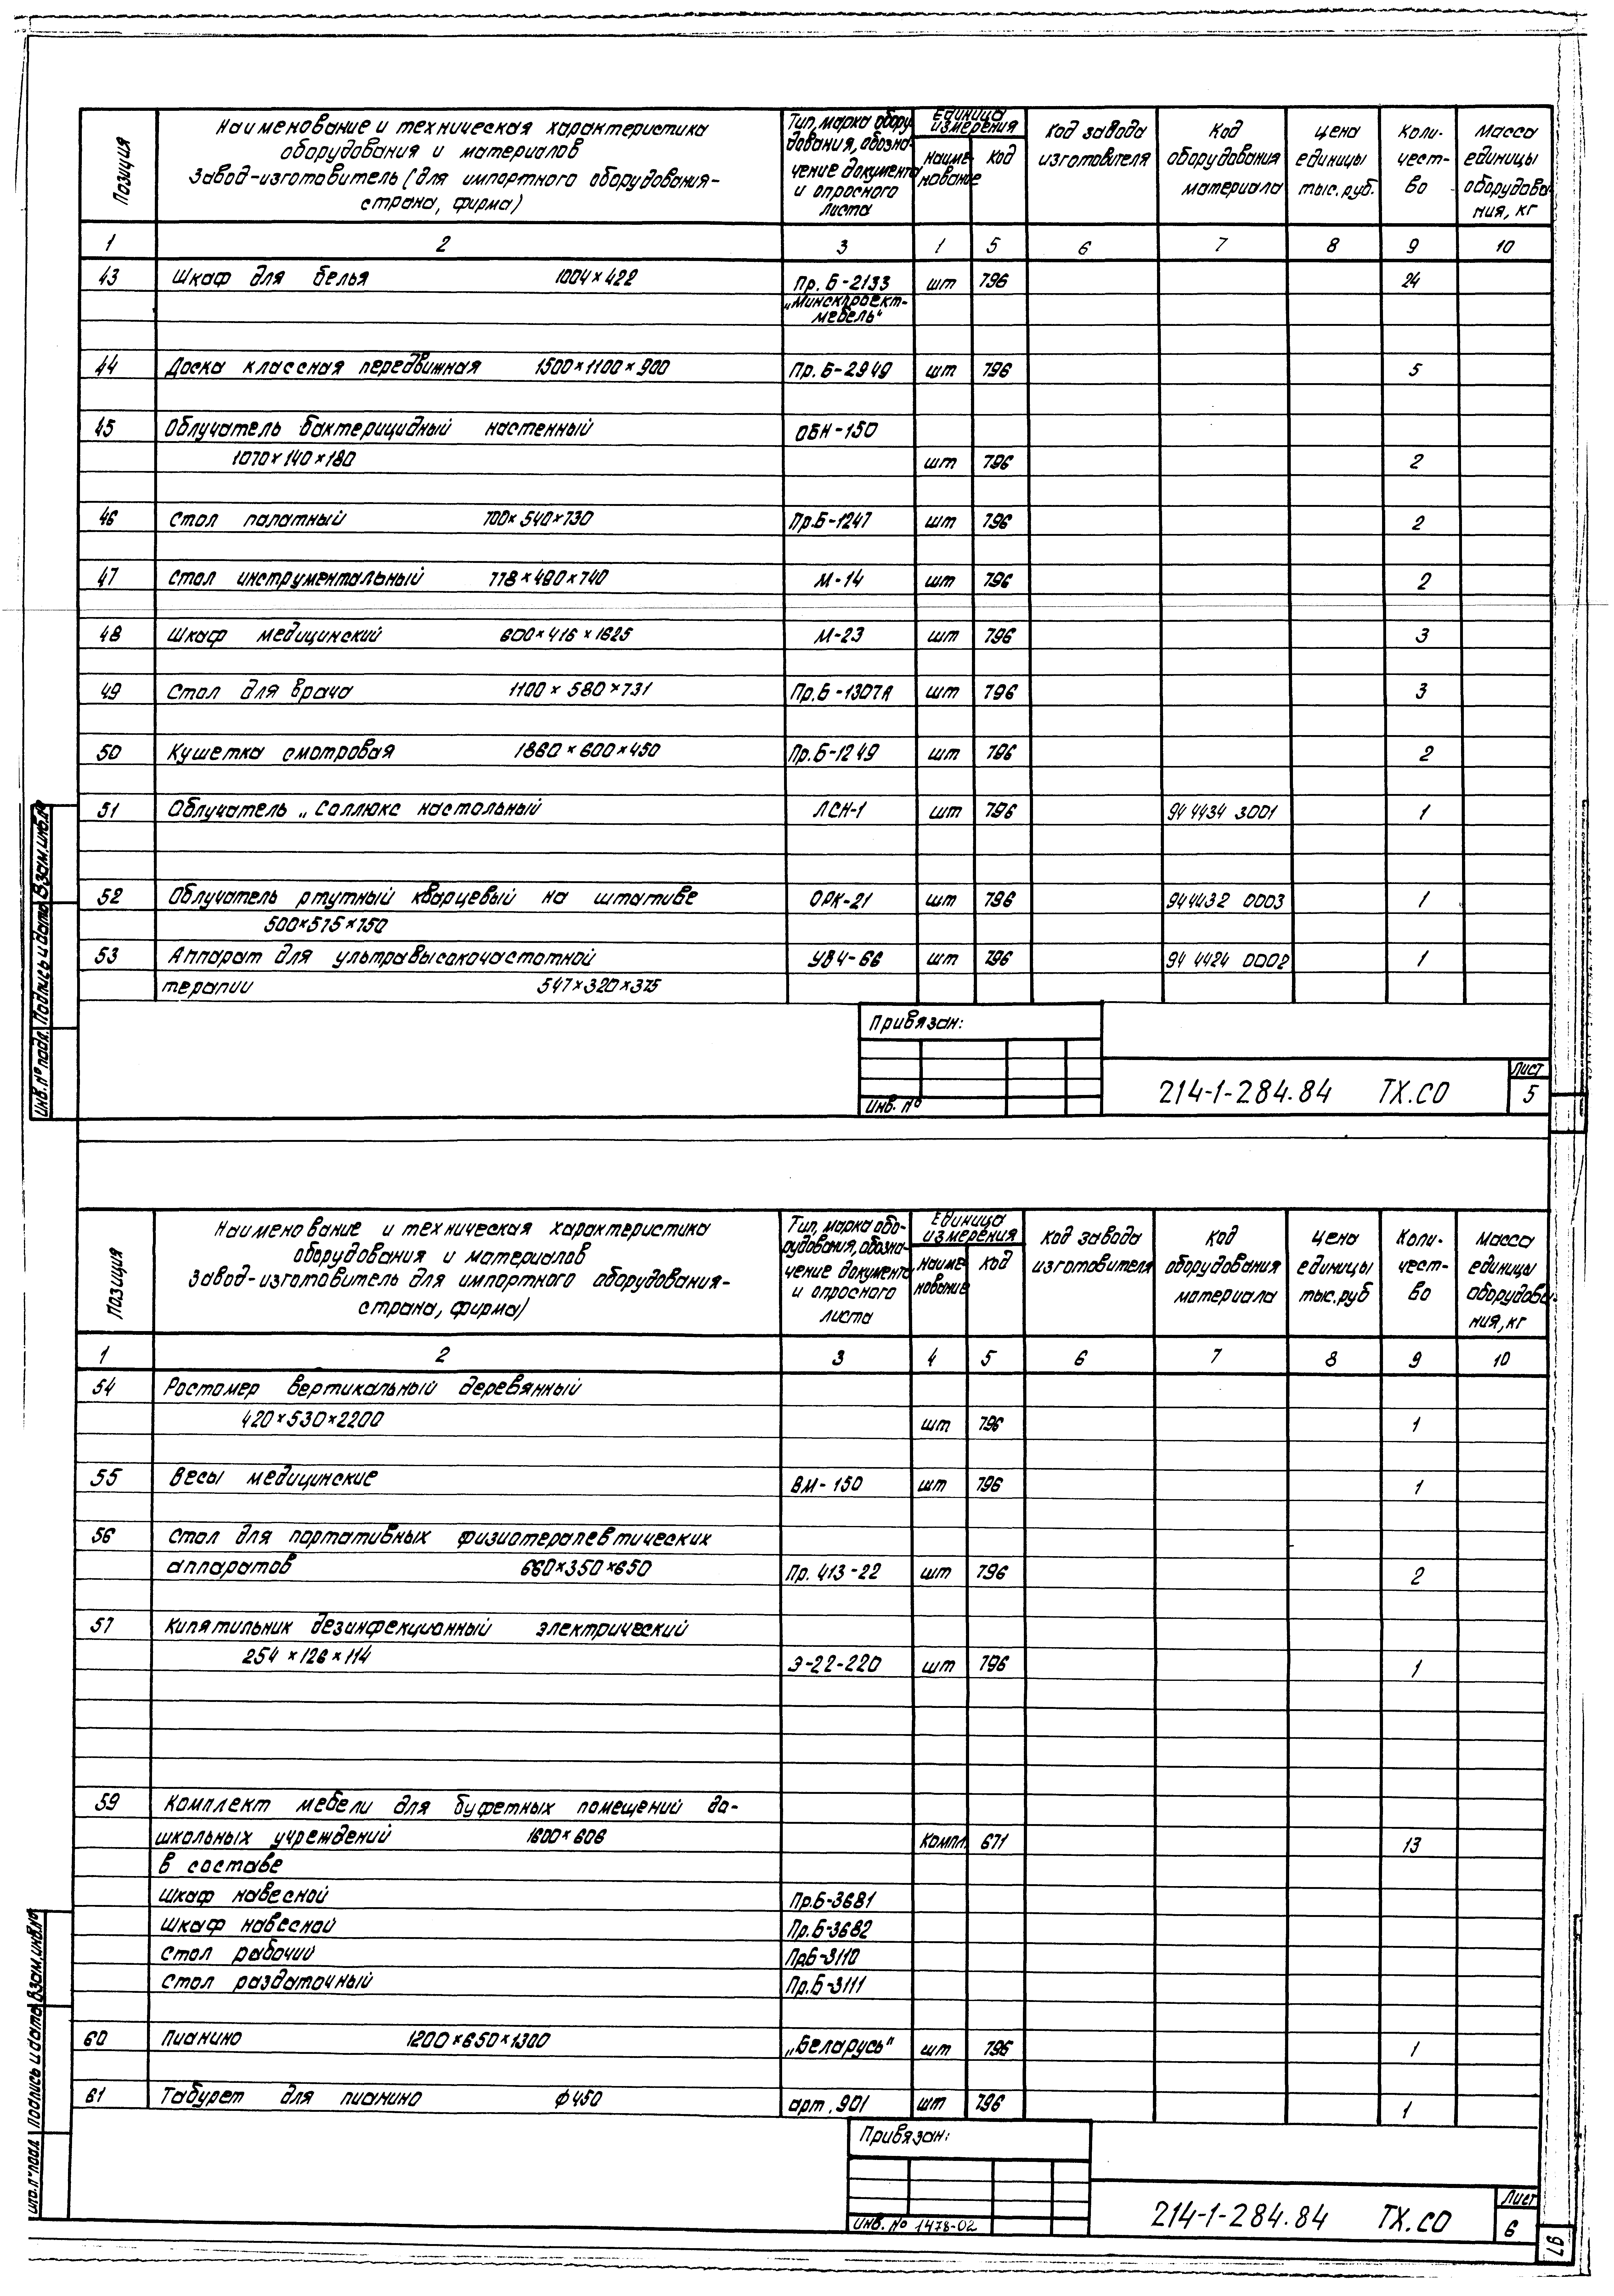 Позиция
Наименование и техническая характеристика
оборудования и материалов
Завод-изготовитель (для импортного оборудования-
страна, фирма)
Тип, марка обору
дования, обозна-
чение документа
и опросного
листа
Единица
измерения
Наиме-
нование
Код
Код завода
изготовителя
Код
оборудования
материала
Цена
единицы
тыс. руб.
Коли-
чест-
во
Масса
единицы
оборудова-
ния, кг
1 2 3 1 5 6 7 8 9 10
43 Шкаф для белья 1004×422 Пр. Б-2133 шт 796 24
„Минскпроект-
мебель"
44 Доска классная передвижная 1500×1100×900 Пр. Б-2949 шт 796 5
45 Облучатель бактерицидный настенный ОБН-150
1070×140×180 шт 796 2
46 Стол палатный 700×540×730 Пр.Б-1247 шт 796 2
47 Стол инструментальный 778×490×740 М-14 шт 796 2
48 Шкаф медицинский 600×416×1625 М-23 шт 796 3
49 Стол для врача 1100×580×731 Пр.Б-1307А шт 796 3
50 Кушетка смотровая 1860×600×450 Пр.Б-1249 шт 796 2
51 Облучатель „Соллюкс настольный ЛСН-1 шт 796 94 4434 3001 1
52 Облучатель ртутный кварцевый на штативе ОРК-21 шт 796 94 4432 0003 1
500×575×750
53 Аппарат для ультравысокочастотной УВЧ-66 шт 796 94 4424 0002 1
терапии 547×320×375
Привязан:
Инв. №
214-1-284.84 ТХ.СО
Лист
5
Инв. № подл. Подпись и дата Взам. инв. №
Позиция
Наименование и техническая характеристика
оборудования и материалов
Завод-изготовитель для импортного оборудования-
страна, фирма)
Тип, марка обо-
рудования, обозна-
чение документа
и опросного
листа
Единица
измерения
Наиме
нование
Код
Код завода
изготовителя
Код
оборудования
материала
Цена
единицы
тыс. руб
Коли-
чест-
во
Масса
единицы
оборудова-
ния, кг
1 2 3 4 5 6 7 8 9 10
54 Ростомер вертикальный деревянный
420×530×2200 шт 796 1
55 Весы медицинские ВМ-150 шт 796 1
56 Стол для портативных физиотерапевтических
аппаратов 660×350×650 Пр. 413-22 шт 796 2
57 Кипятильник дезинфекционный электрический
254×126×114 Э-22-220 шт 796 1
59 Комплект мебели для буфетных помещений до-
школьных учреждений 1600×606 компл. 671 13
в составе
шкаф навесной Пр.Б-3681
шкаф навесной Пр.Б-3682
стол рабочий Пр.Б-3110
Стол раздаточный Пр.Б-3111
60 Пианино 1200×650×1300 „Беларусь" шт 796 1
61 Табурет для пианино ф450 арт. 901 шт 796 1
Привязан:
Инв. № 1478-02
214-1-284.84 ТХ.СО
Лист
6
Инв. № подл. Подпись и дата Взам. инв. №